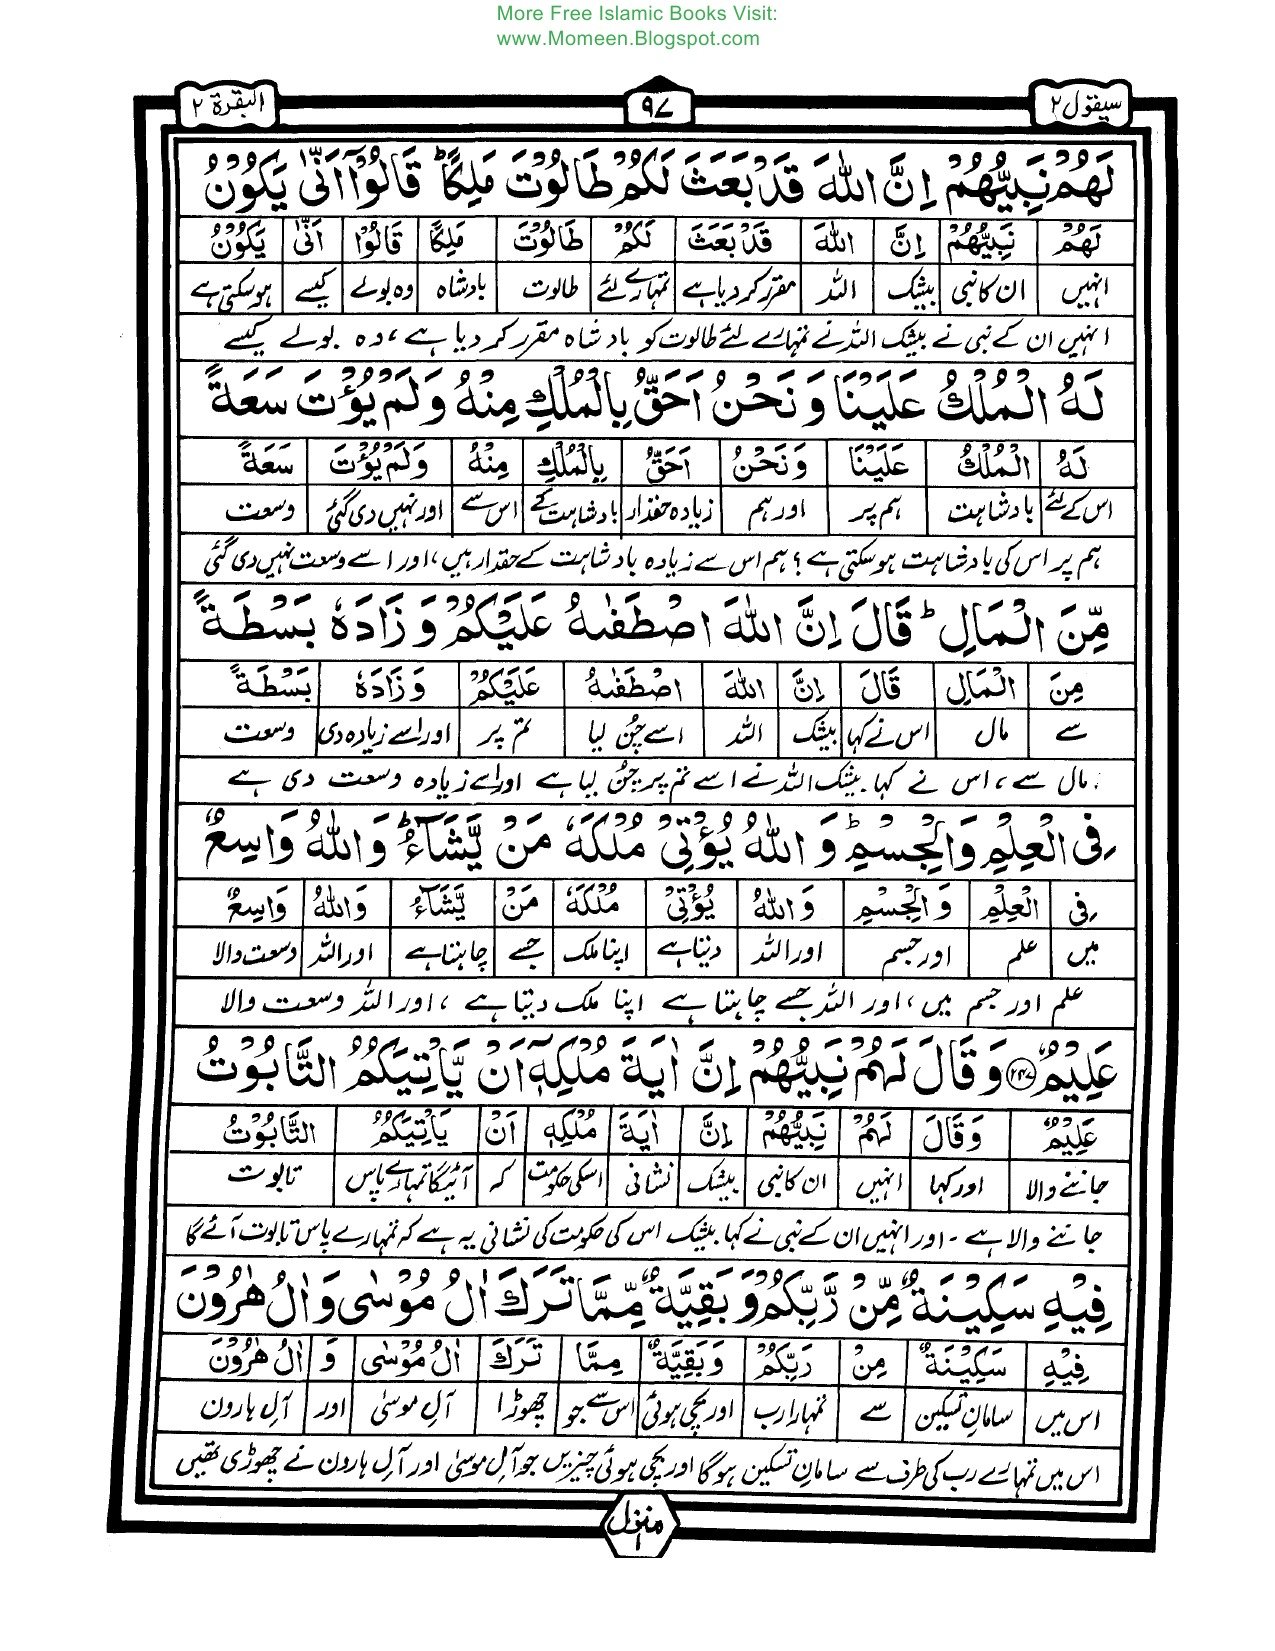 More Free Islamic Books Visit:
www.Momeen.Blogspot.com
سیقول ۲
۹۷
البقرة ۲
لَهُمْ نَبِيُّهُمْ اِنَّ اللّٰهَ قَدْ بَعَثَ لَكُمْ طَالُوْتَ مَلِكًا ؕ قَالُوْۤا اَنّٰى يَكُوْنُ
لَهُمْ نَبِيُّهُمْ اِنَّ اللّٰهَ قَدْ بَعَثَ لَكُمْ طَالُوْتَ مَلِكًا قَالُوْا اَنّٰى يَكُوْنُ
انہیں ان کا نبی بیشک اللہ مقرر کر دیا ہے تمہارے لئے طالوت بادشاہ وہ بولے کیسے ہو سکتی ہے
انہیں ان کے نبی نے بیشک اللہ نے تمہارے لئے طالوت کو بادشاہ مقرر کر دیا ہے، وہ بولے کیسے
لَهُ الْمُلْكُ عَلَيْنَا وَنَحْنُ اَحَقُّ بِالْمُلْكِ مِنْهُ وَلَمْ يُؤْتَ سَعَةً
لَهُ الْمُلْكُ عَلَيْنَا وَنَحْنُ اَحَقُّ بِالْمُلْكِ مِنْهُ وَلَمْ يُؤْتَ سَعَةً
اس کے لئے بادشاہت ہم پر اور ہم زیادہ حقدار بادشاہت کے اس سے اور نہیں دی گئی وسعت
ہم پر اس کی بادشاہت ہو سکتی ہے؟ ہم اس سے زیادہ بادشاہت کے حقدار ہیں، اور اسے وسعت نہیں دی گئی
مِّنَ الْمَالِ ؕ قَالَ اِنَّ اللّٰهَ اصْطَفٰىهُ عَلَيْكُمْ وَزَادَهٗ بَسْطَةً
مِنَ الْمَالِ قَالَ اِنَّ اللّٰهَ اصْطَفٰىهُ عَلَيْكُمْ وَزَادَهٗ بَسْطَةً
سے مال اس نے کہا بیشک اللہ اسے چُن لیا تم پر اور اسے زیادہ دی وسعت
مال سے، اس نے کہا بیشک اللہ نے اسے تم پر چُن لیا ہے اور اسے زیادہ وسعت دی ہے
فِى الْعِلْمِ وَالْجِسْمِ ؕ وَاللّٰهُ يُؤْتِىْ مُلْكَهٗ مَنْ يَّشَآءُ ؕ وَاللّٰهُ وَاسِعٌ
فِى الْعِلْمِ وَالْجِسْمِ وَاللّٰهُ يُؤْتِىْ مُلْكَهٗ مَنْ يَّشَآءُ وَاللّٰهُ وَاسِعٌ
میں علم اور جسم اور اللہ دیتا ہے اپنا ملک جسے چاہتا ہے اور اللہ وسعت والا
علم اور جسم میں، اور اللہ جسے چاہتا ہے اپنا ملک دیتا ہے، اور اللہ وسعت والا
عَلِيْمٌ ﴿۲۴۷﴾ وَقَالَ لَهُمْ نَبِيُّهُمْ اِنَّ اٰيَةَ مُلْكِهٖۤ اَنْ يَّاْتِيَكُمُ التَّابُوْتُ
عَلِيْمٌ وَقَالَ لَهُمْ نَبِيُّهُمْ اِنَّ اٰيَةَ مُلْكِهٖ اَنْ يَاْتِيَكُمُ التَّابُوْتُ
جاننے والا اور کہا انہیں ان کا نبی بیشک نشانی اسکی حکومت کہ آئیگا تمہارے پاس تابوت
جاننے والا ہے - اور انہیں ان کے نبی نے کہا بیشک اس کی حکومت کی نشانی یہ ہے کہ تمہارے پاس تابوت آئے گا
فِيْهِ سَكِيْنَةٌ مِّنْ رَّبِّكُمْ وَبَقِيَّةٌ مِّمَّا تَرَكَ اٰلُ مُوْسٰى وَاٰلُ هٰرُوْنَ
فِيْهِ سَكِيْنَةٌ مِنْ رَبِّكُمْ وَبَقِيَّةٌ مِمَّا تَرَكَ اٰلُ مُوْسٰى وَ اٰلُ هٰرُوْنَ
اس میں سامانِ تسکین سے تمہارا رب اور بچی ہوئی اس سے جو چھوڑا آلِ موسیٰ اور آلِ ہارون
اس میں تمہارے رب کی طرف سے سامانِ تسکین ہو گا اور بچی ہوئی چیزیں جو آلِ موسیٰ اور آلِ ہارون نے چھوڑی تھیں
منزل ۱